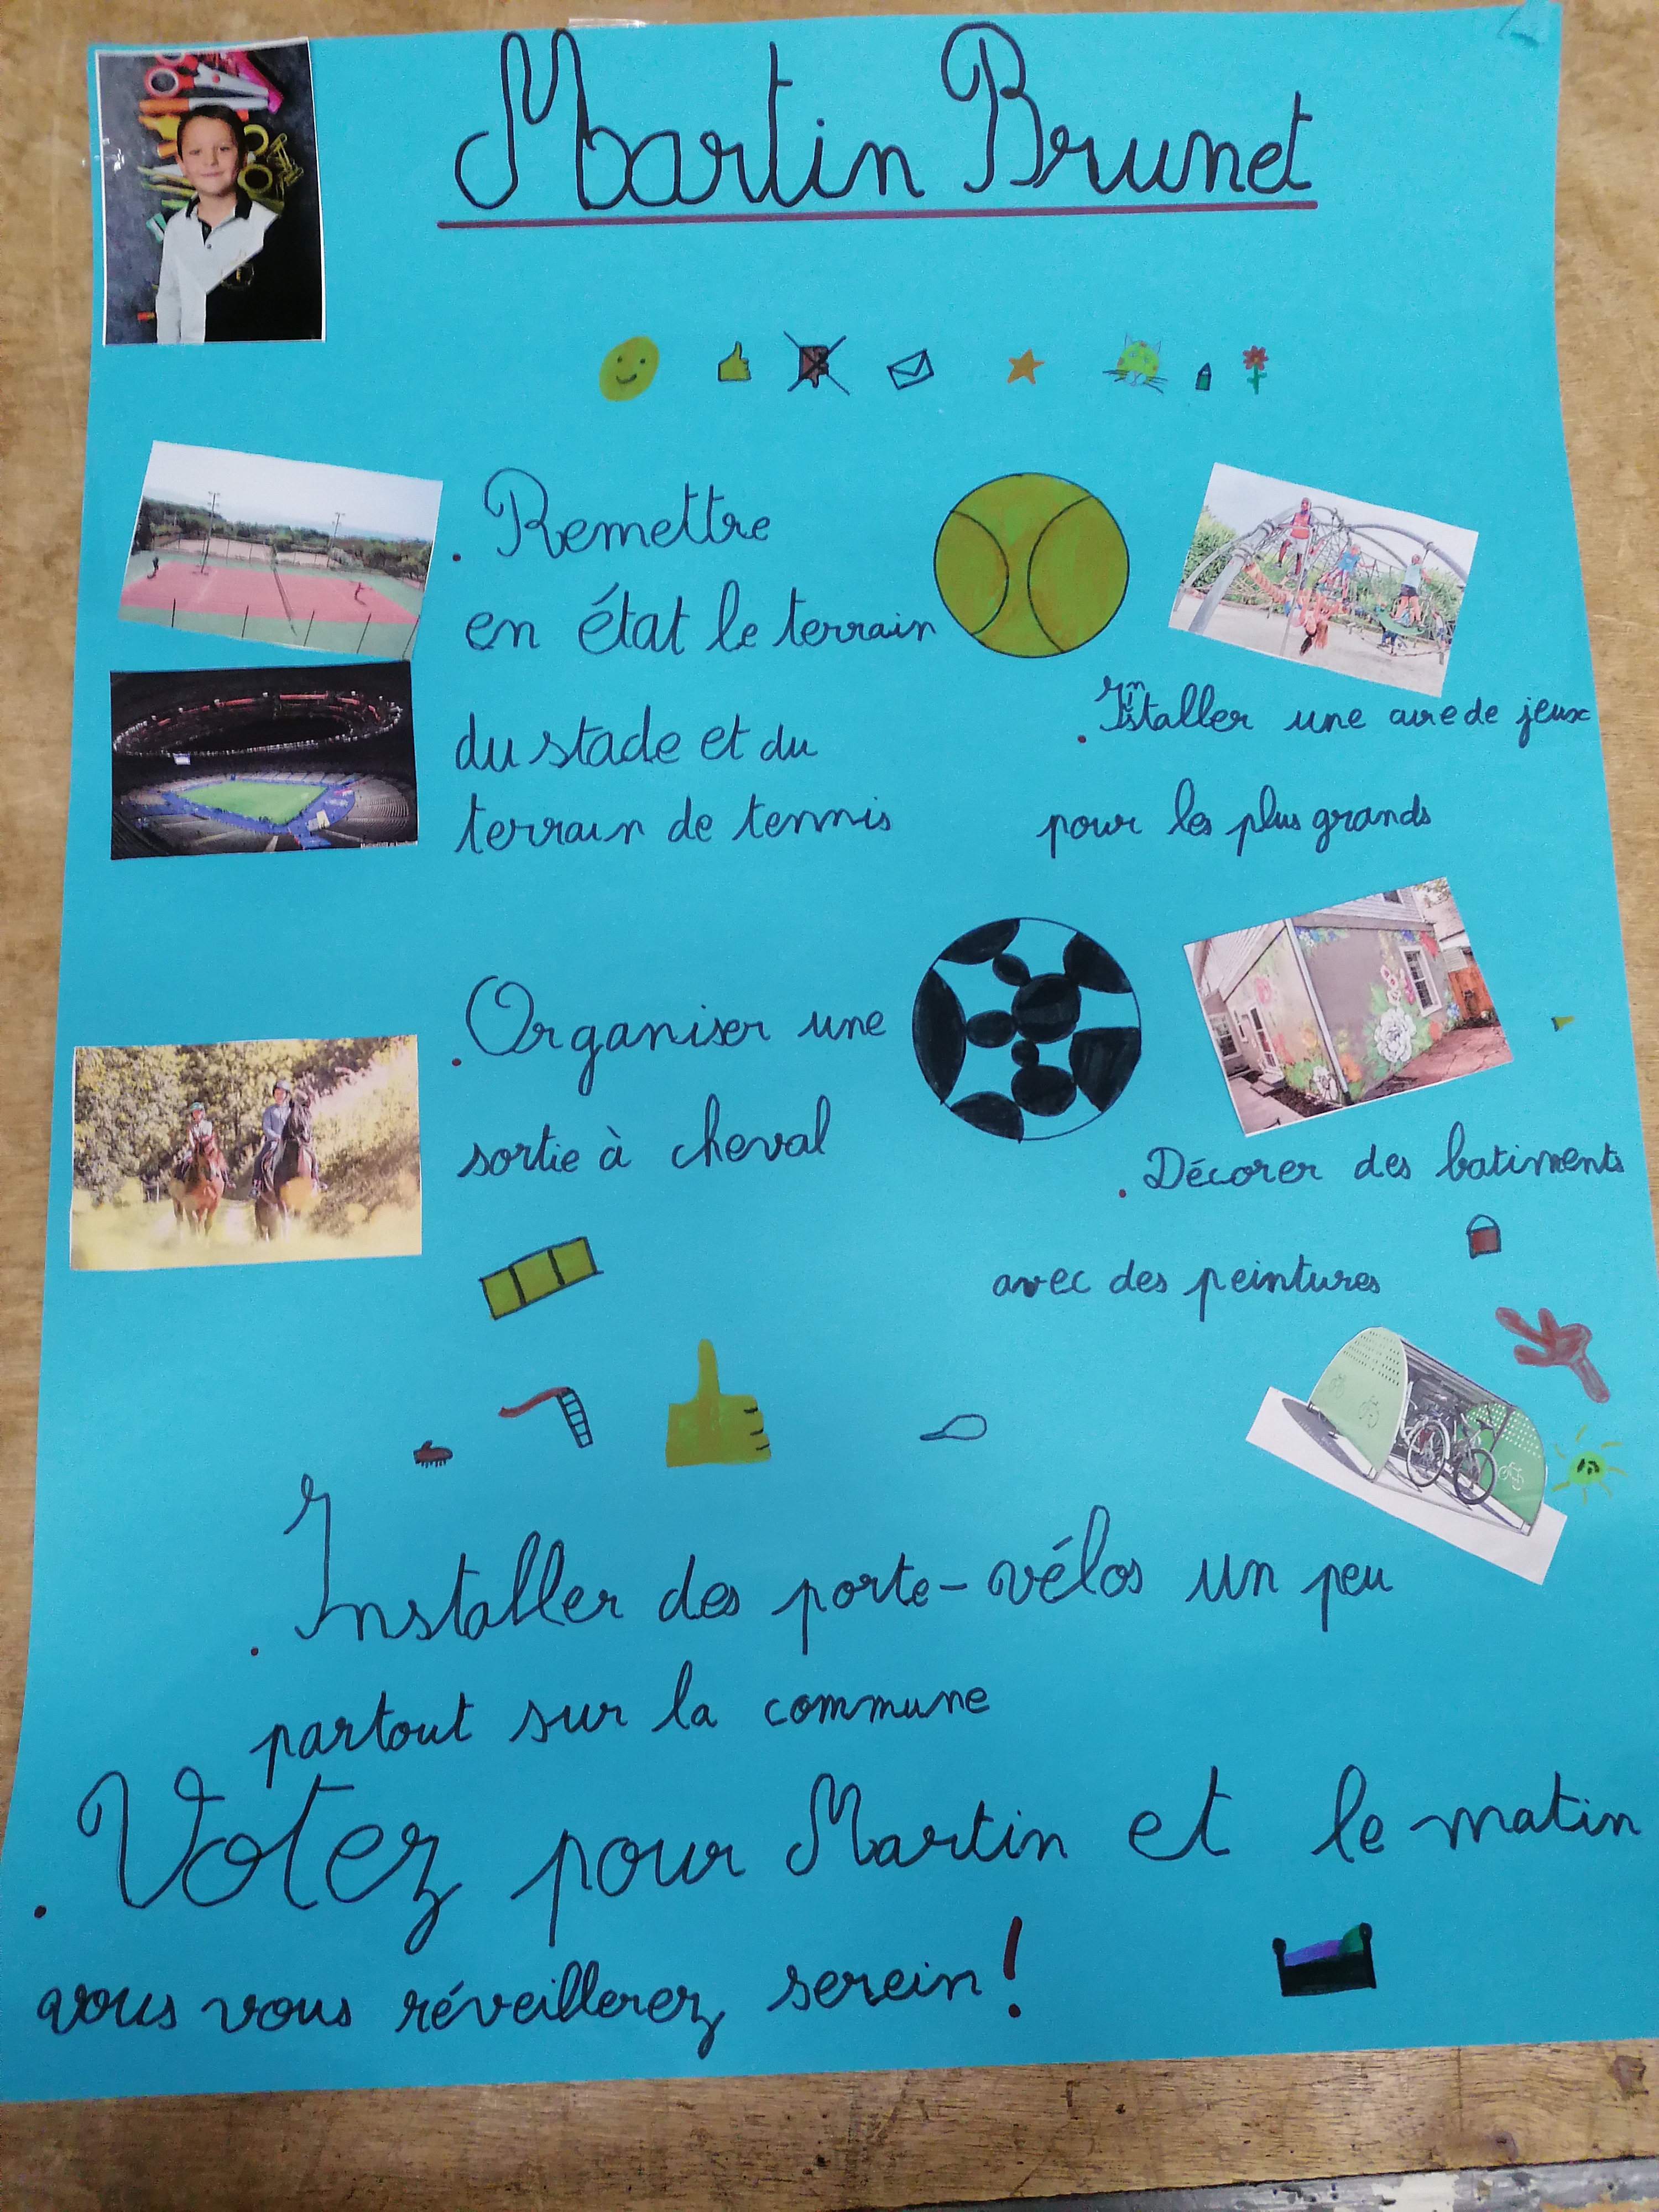 Martin Brunet
. Remettre
en état le terrain
du stade et du
terrain de tennis
. Installer une aire de jeux
pour les plus grands
. Organiser une
sortie à cheval
. Décorer des batiments
avec des peintures
. Installer des porte-vélos un peu
partout sur la commune
. Votez pour Martin et le matin
vous vous réveillerez serein !